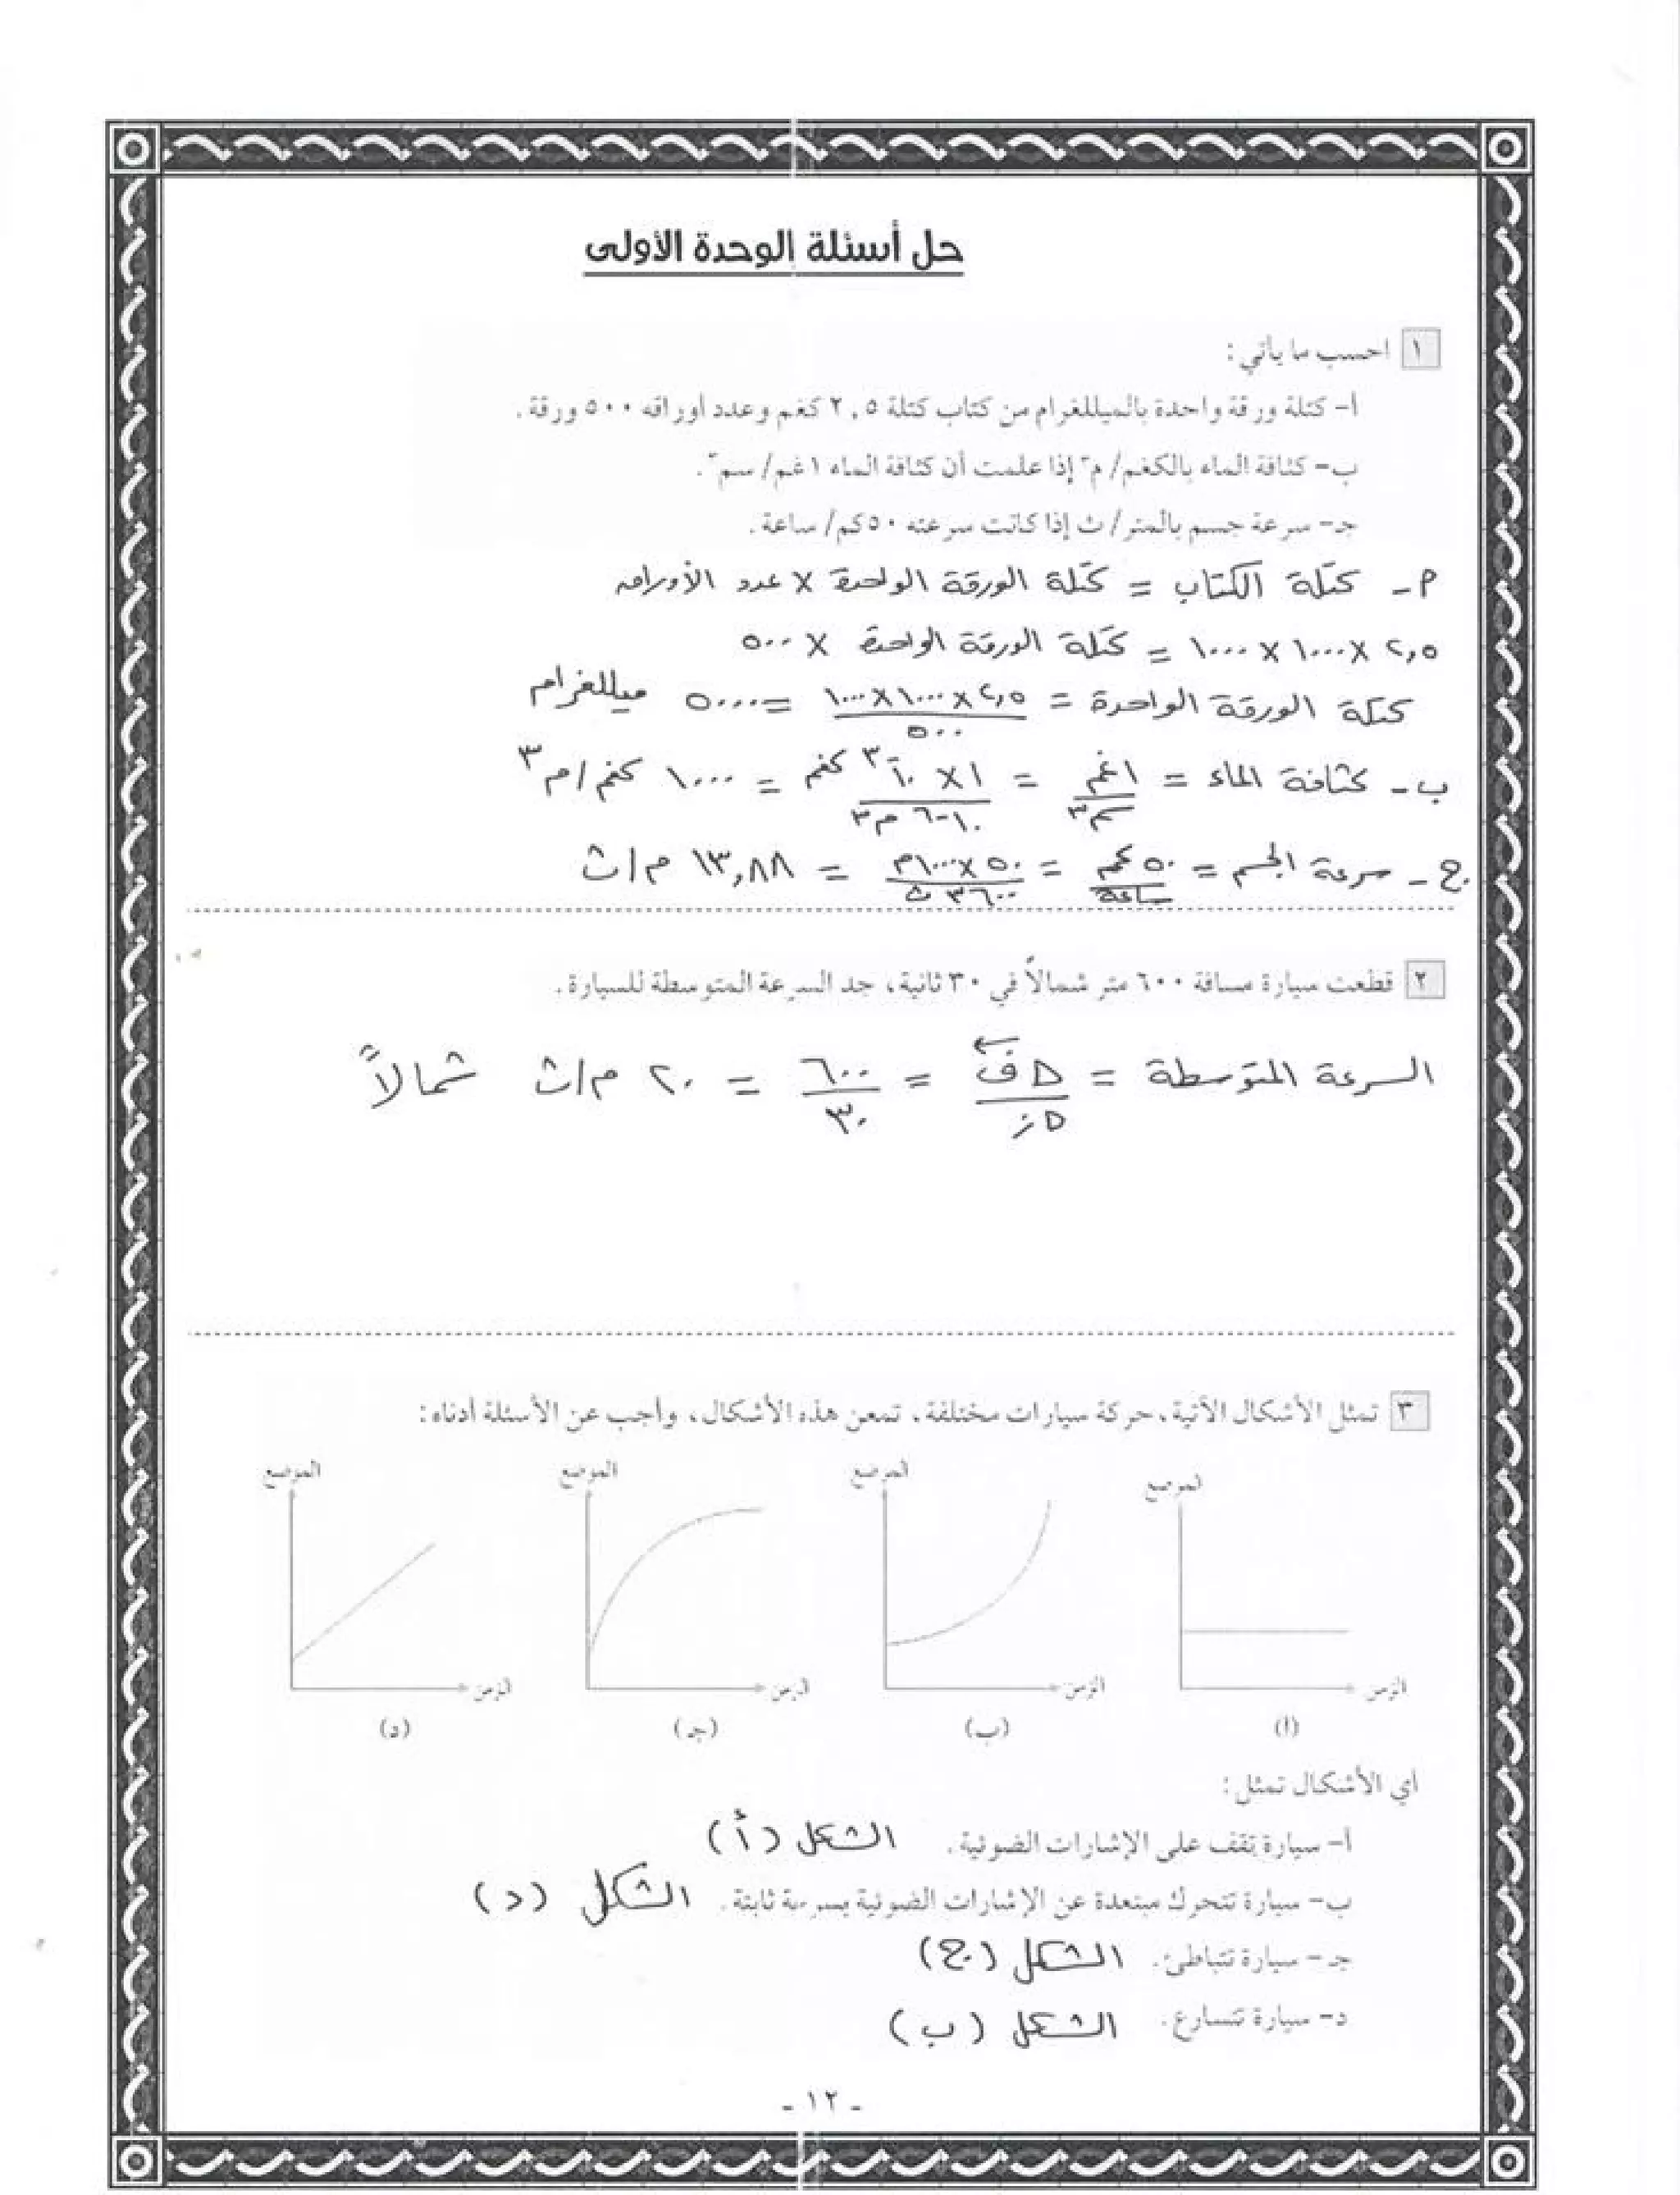 حل أسئلة الوحدة الأولى
١ احسب ما يأتي:
أ- كتلة ورقة واحدة بالميللغرام من كتاب كتلة ٢,٥ كغم وعدد أوراقه ٥٠٠ ورقة.
ب- كثافة الماء بالكغم/ م٣ إذا علمت أن كثافة الماء ١غم/ سم٣.
جـ- سرعة جسم بالمتر/ ث إذا كانت سرعته ٥٠كم/ ساعة.
٢- كتلة الكتاب = كتلة الورقة الواحدة × عدد الأوراق
٢,٥ × ١٠٠٠ × ١٠٠٠ = كتلة الورقة الواحدة × ٥٠٠
كتلة الورقة الواحدة = ٢,٥ × ١٠٠٠ × ١٠٠٠ / ٥٠٠ = ٥٠٠٠ ميللغرام
ب- كثافة الماء = ١غم / سم٣ = ١ × ١٠-٣ كغم / ١٠-٦ م٣ = ١٠٠٠ كغم/م٣
ج- سرعة الجسم = ٥٠ كم / ساعة = ٥٠ × ١٠٠٠م / ٣٦٠٠ ث = ١٣,٨٨ م/ث
٢ قطعت سيارة مسافة ٦٠٠ متر شمالاً في ٣٠ ثانية، جد السرعة المتوسطة للسيارة.
السرعة المتوسطة = Δف / Δز = ٦٠٠ / ٣٠ = ٢٠ م/ث شمالاً
٣ تمثل الأشكال الآتية، حركة سيارات مختلفة، تمعن هذه الأشكال، وأجب عن الأسئلة أدناه:
الموضع الموضع الموضع الموضع
الزمن الزمن الزمن الزمن
(أ) (ب) (جـ) (د)
أي الأشكال تمثل:
أ- سيارة تقف على الإشارات الضوئية. الشكل (أ)
ب- سيارة تتحرك مبتعدة عن الإشارات الضوئية بسرعة ثابتة. الشكل (د)
جـ- سيارة تتباطئ. الشكل (ج)
د- سيارة تتسارع. الشكل (ب)
- ١٢ -